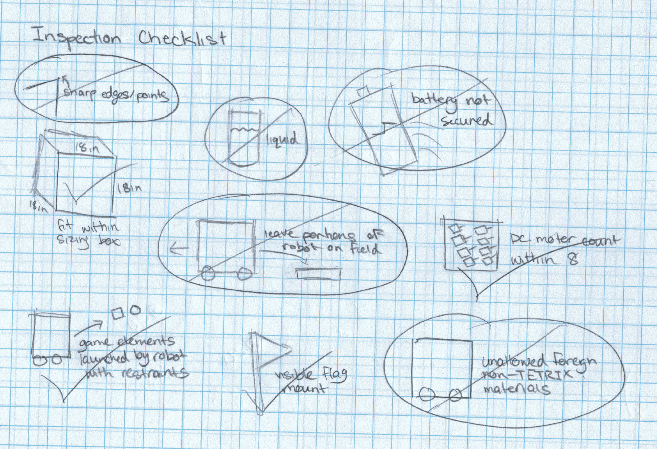 Inspection Checklist
sharp edges/points
liquid
battery not
secured
18in
18in
18in
fit within
sizing box
leave portions of
robot on field
DC motor count
within 8
game elements
launched by robot
with restraints
visible flag
mount
unallowed foreign
non-TETRIX
materials